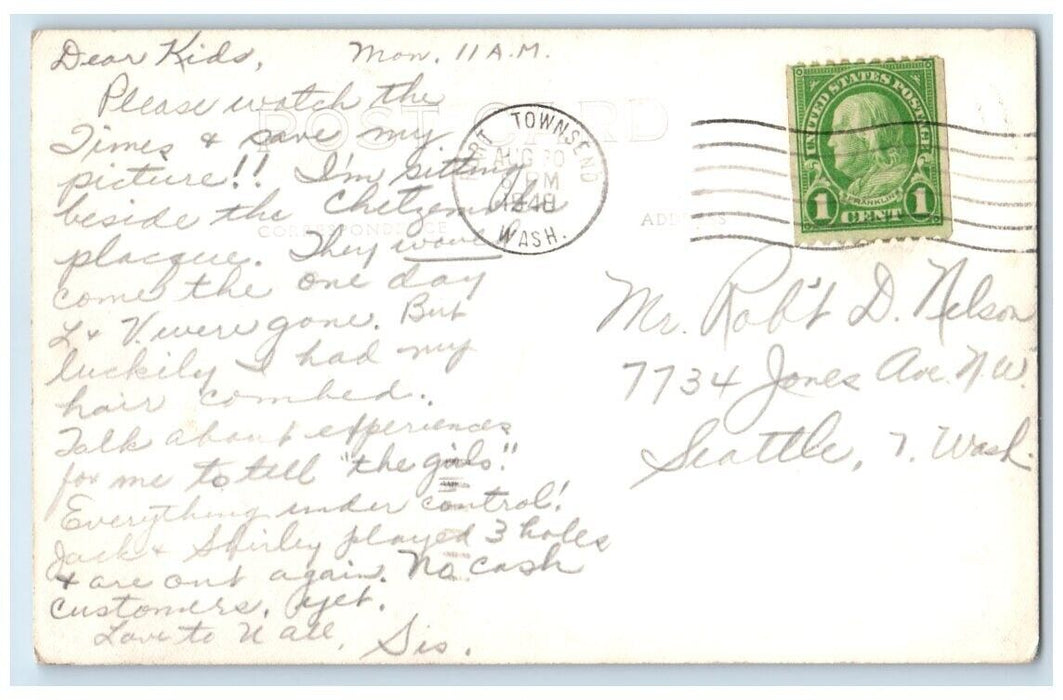 Dear Kids, Mon. 11 A.M.
Please watch the
Times & save my
picture!! I'm sitting
beside the Chetzemoka
placque. They would
come the one day
L & V. were gone. But
luckily I had my
hair combed.
Talk about experiences
for me to tell "the girls."
Everything under control!
Jack & Shirley played 3 holes
& are out again. No cash
customers, yet.
Love to U all,
Sis.
POST CARD
CORRESPONDENCE
ADDRESS
PORT TOWNSEND
AUG 30
PM
1948
WASH.
UNITED STATES POSTAGE
FRANKLIN
1 CENT 1
Mr. Rob't D. Nelson
7734 Jones Ave. N.W.
Seattle, 7, Wash.